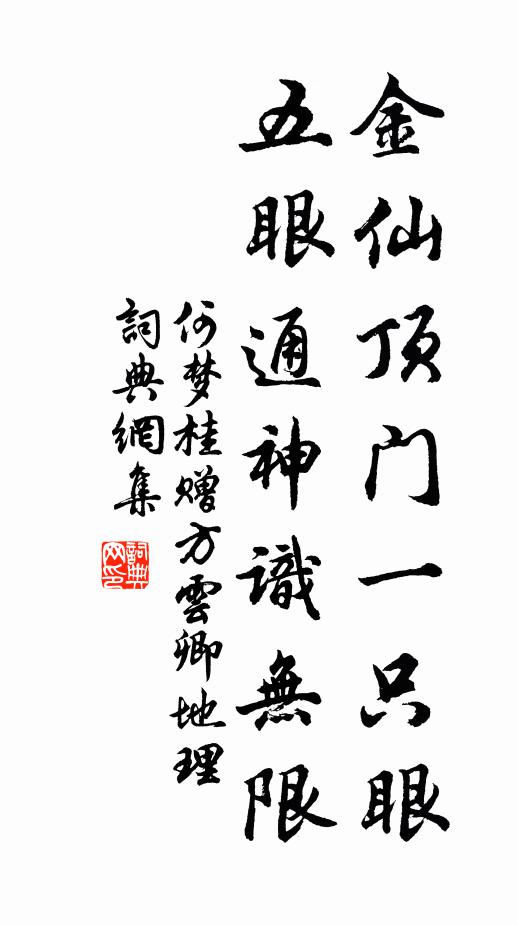 金仙顶门一只眼
五眼通神識無限
何梦桂赠方雲卿地理
詞典網集
詞典网印